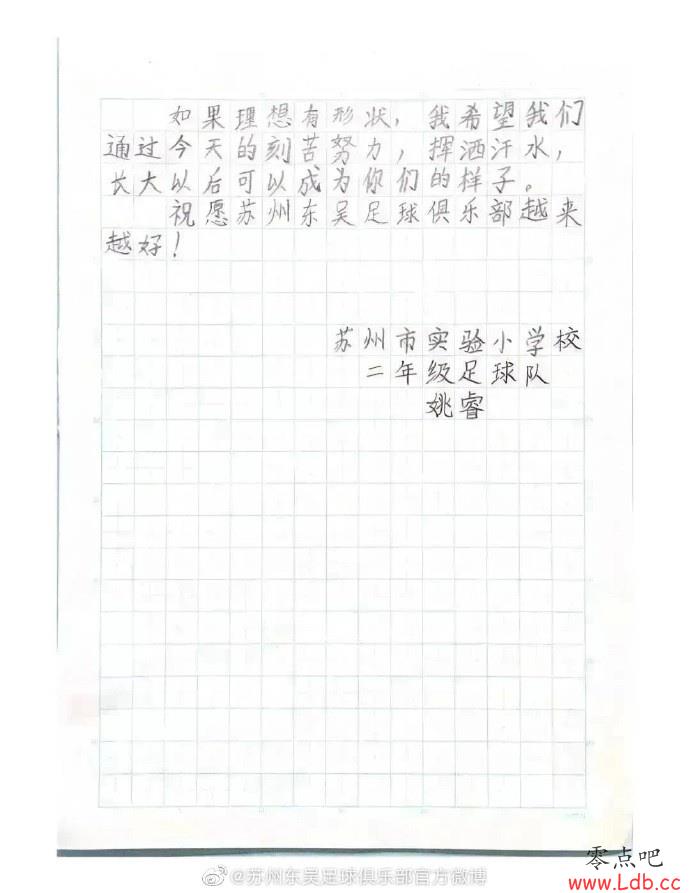 如果理想有形状，我希望我们
通过今天的刻苦努力，挥洒汗水，
长大以后可以成为你们的样子。
祝愿苏州东吴足球俱乐部越来
越好！
苏州市实验小学校
二年级足球队
姚睿
@苏州东吴足球俱乐部官方微博
零点吧
www.Ldb.cc